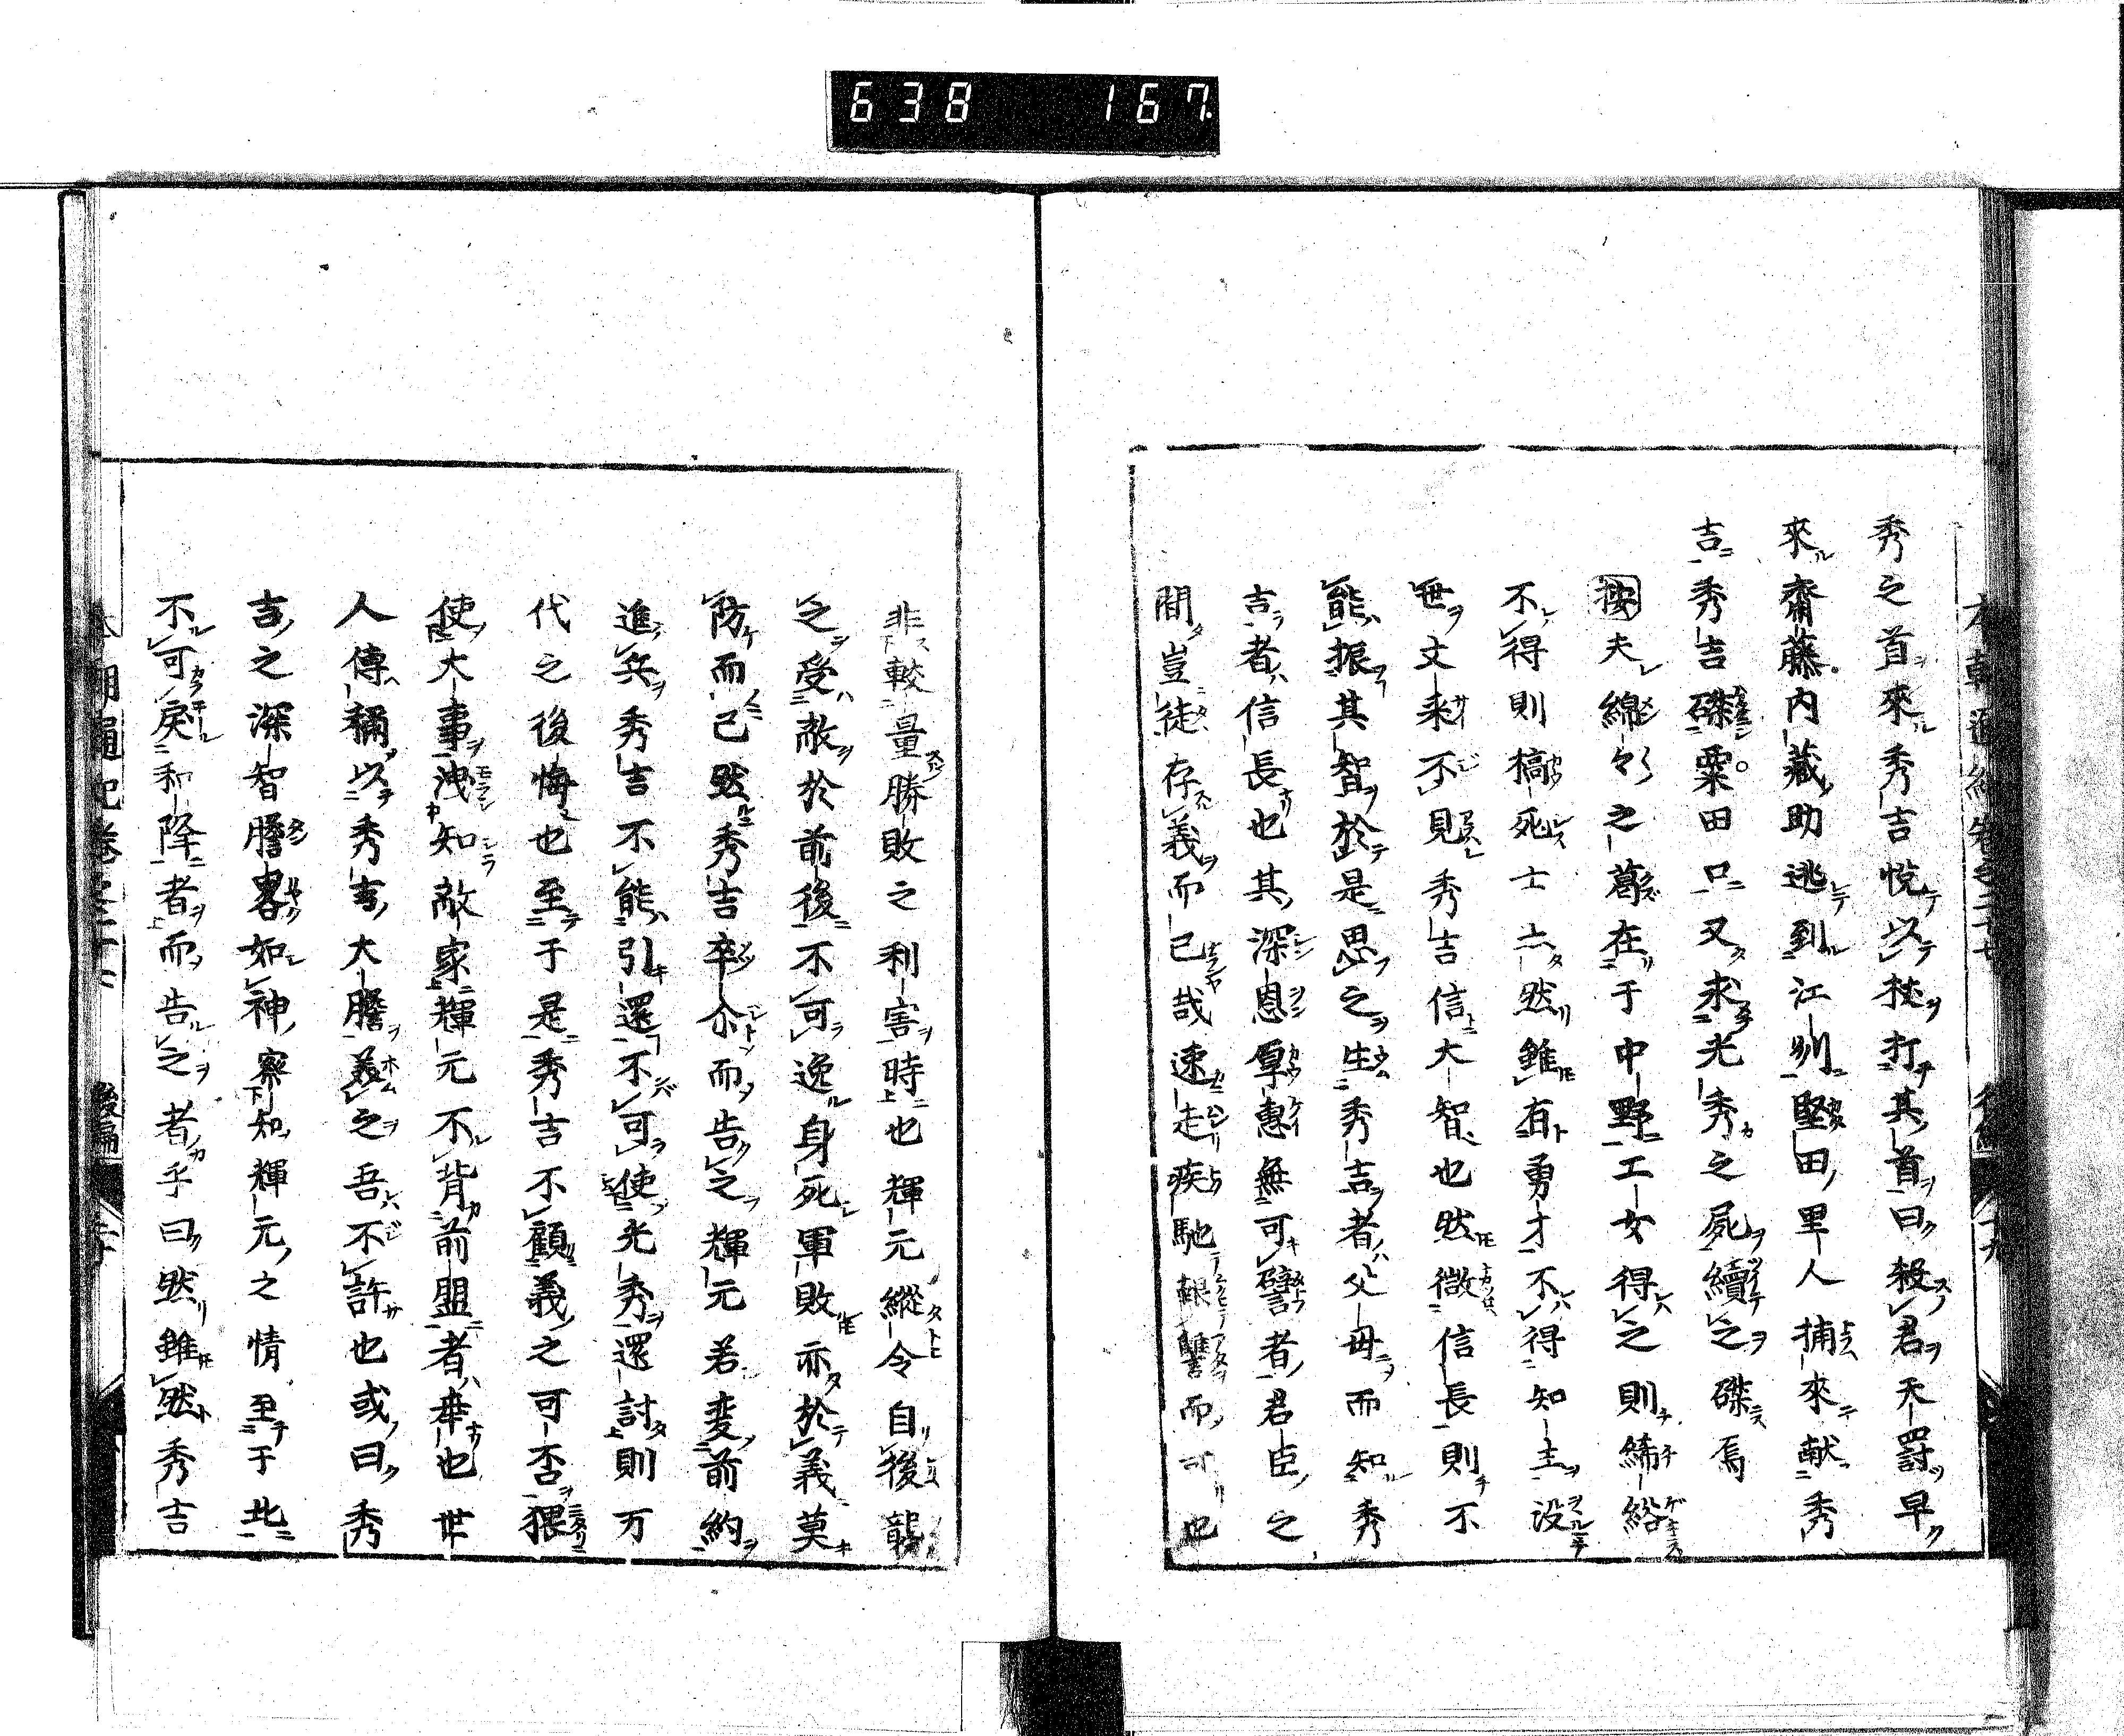 638 167
秀之首來秀吉悅以杖打其首曰殺君天罸早
來齋藤內藏助逃到江州堅田里人捕來献秀
吉秀吉磔粟田口又求光秀之屍續之磔焉
按夫綿々之葛在于中野工女得之則絺綌
不得則槁死士亦然雖有勇才不得知主没
世丈采不見秀吉信大智也然微信長則不
能振其智於是思之生秀吉者父母而知秀
吉者信長也其深恩厚惠無可譬者君臣之
間豈徒存義而已哉速走疾馳報讐而可也
非較量勝敗之利害時也輝元縱令自後襲
之受敵於前後不可逸身死軍敗亦於義莫
防而已然秀吉卒尒而告之輝元若変前約
進兵秀吉不能引還不可使光秀還討則万
代之後悔也至于是秀吉不顧義之可否猥
使大事洩知敵家輝元不背前盟者幸也世
人傳稱以秀吉大膽義之吾不許也或曰秀
吉之深智膽畧如神察知輝元之情至于此
不可戾和降者而告之者乎曰然雖然秀吉